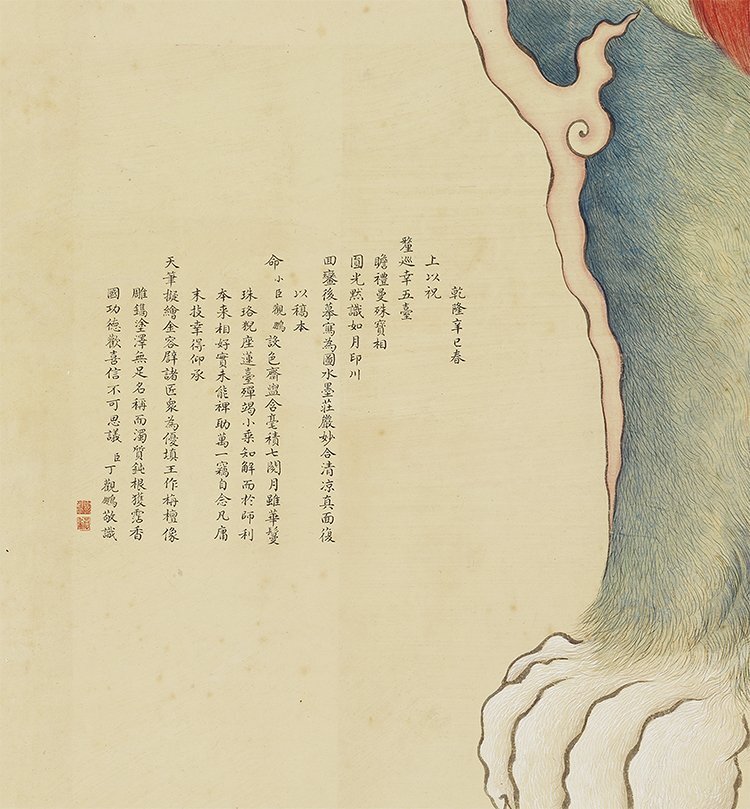 乾隆辛巳春
上以祝
釐巡幸五臺
瞻禮曼殊寶相
圓光默識如月印川
回鑾後摹寫為圖水墨莊嚴妙合清涼真面復
以稿本
命小臣觀鵬設色齋盥含毫積七閱月雖華鬘
珠珞猊座蓮臺殫竭小乘知解而於師利
本來相好實未能裨助萬一竊自念凡庸
末技幸得仰承
天筆擬繪金容辟諸匠眾為優填王作栴檀像
雕鐫塗澤無足名稱而濁質鈍根獲霑香
國功德歡喜信不可思議 臣丁觀鵬敬識